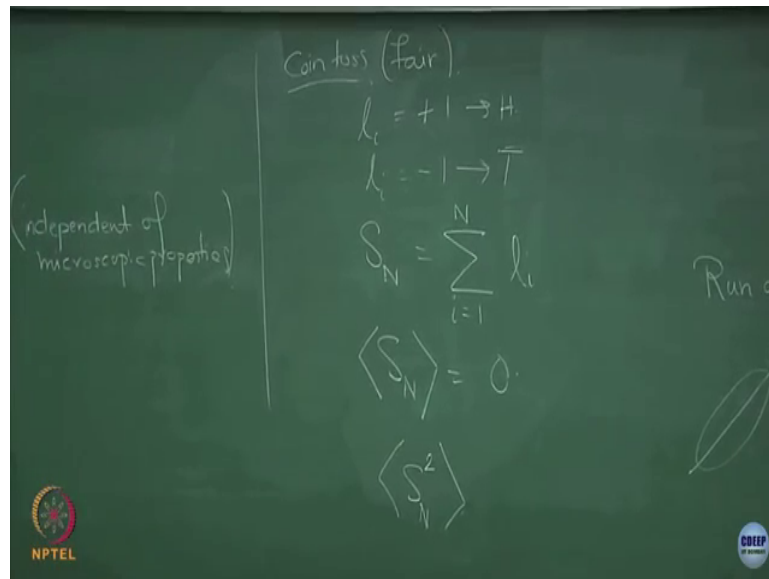 (independent of
microscopic properties)
Coin toss (fair).
l_i = +1 → H.
l_i = -1 → T
S_N = \sum_{i=1}^{N} l_i
⟨S_N⟩ = 0.
⟨S_N^2⟩
Run
NPTEL
CDEEP